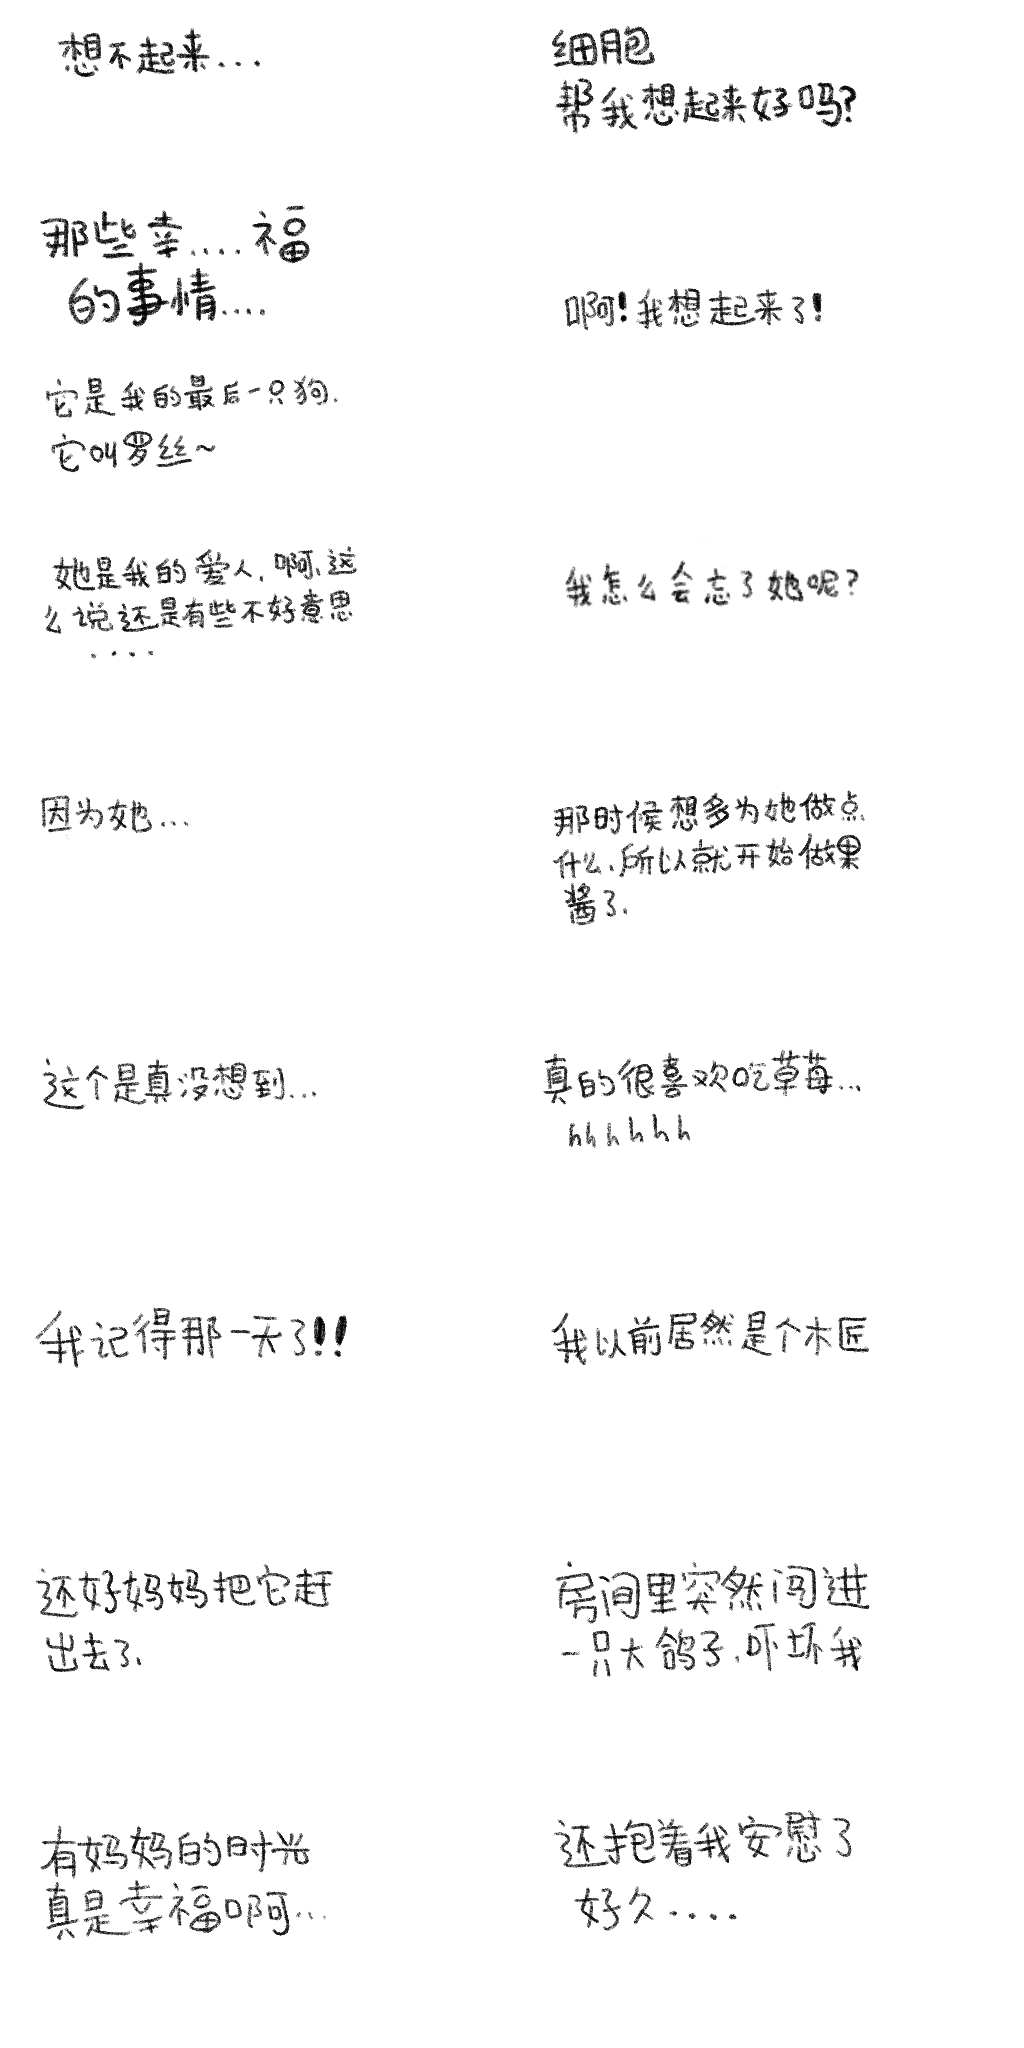 想不起来...
细胞
帮我想起来好吗?
那些幸....福
的事情....
啊!我想起来了!
它是我的最后一只狗.
它叫罗丝~
她是我的爱人.啊、这
么说还是有些不好意思
....
我怎么会忘了她呢?
因为她...
那时候想多为她做点
什么.所以就开始做果
酱了.
这个是真没想到...
真的很喜欢吃草莓...
hhhhhh
我记得那一天了!!
我以前居然是个木匠
还好妈妈把它赶
出去了.
房间里突然闯进
一只大鸽子.吓坏我
有妈妈的时光
真是幸福啊...
还抱着我安慰了
好久....